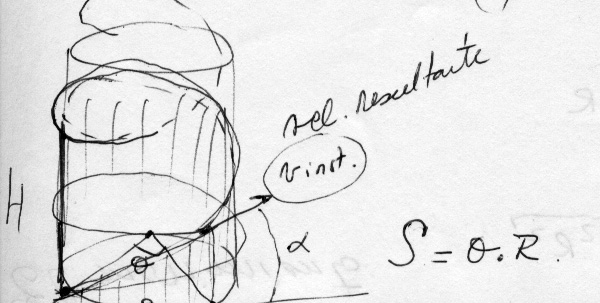 vel. resultante
v inst.
H
α
S = θ.R.
θ
R